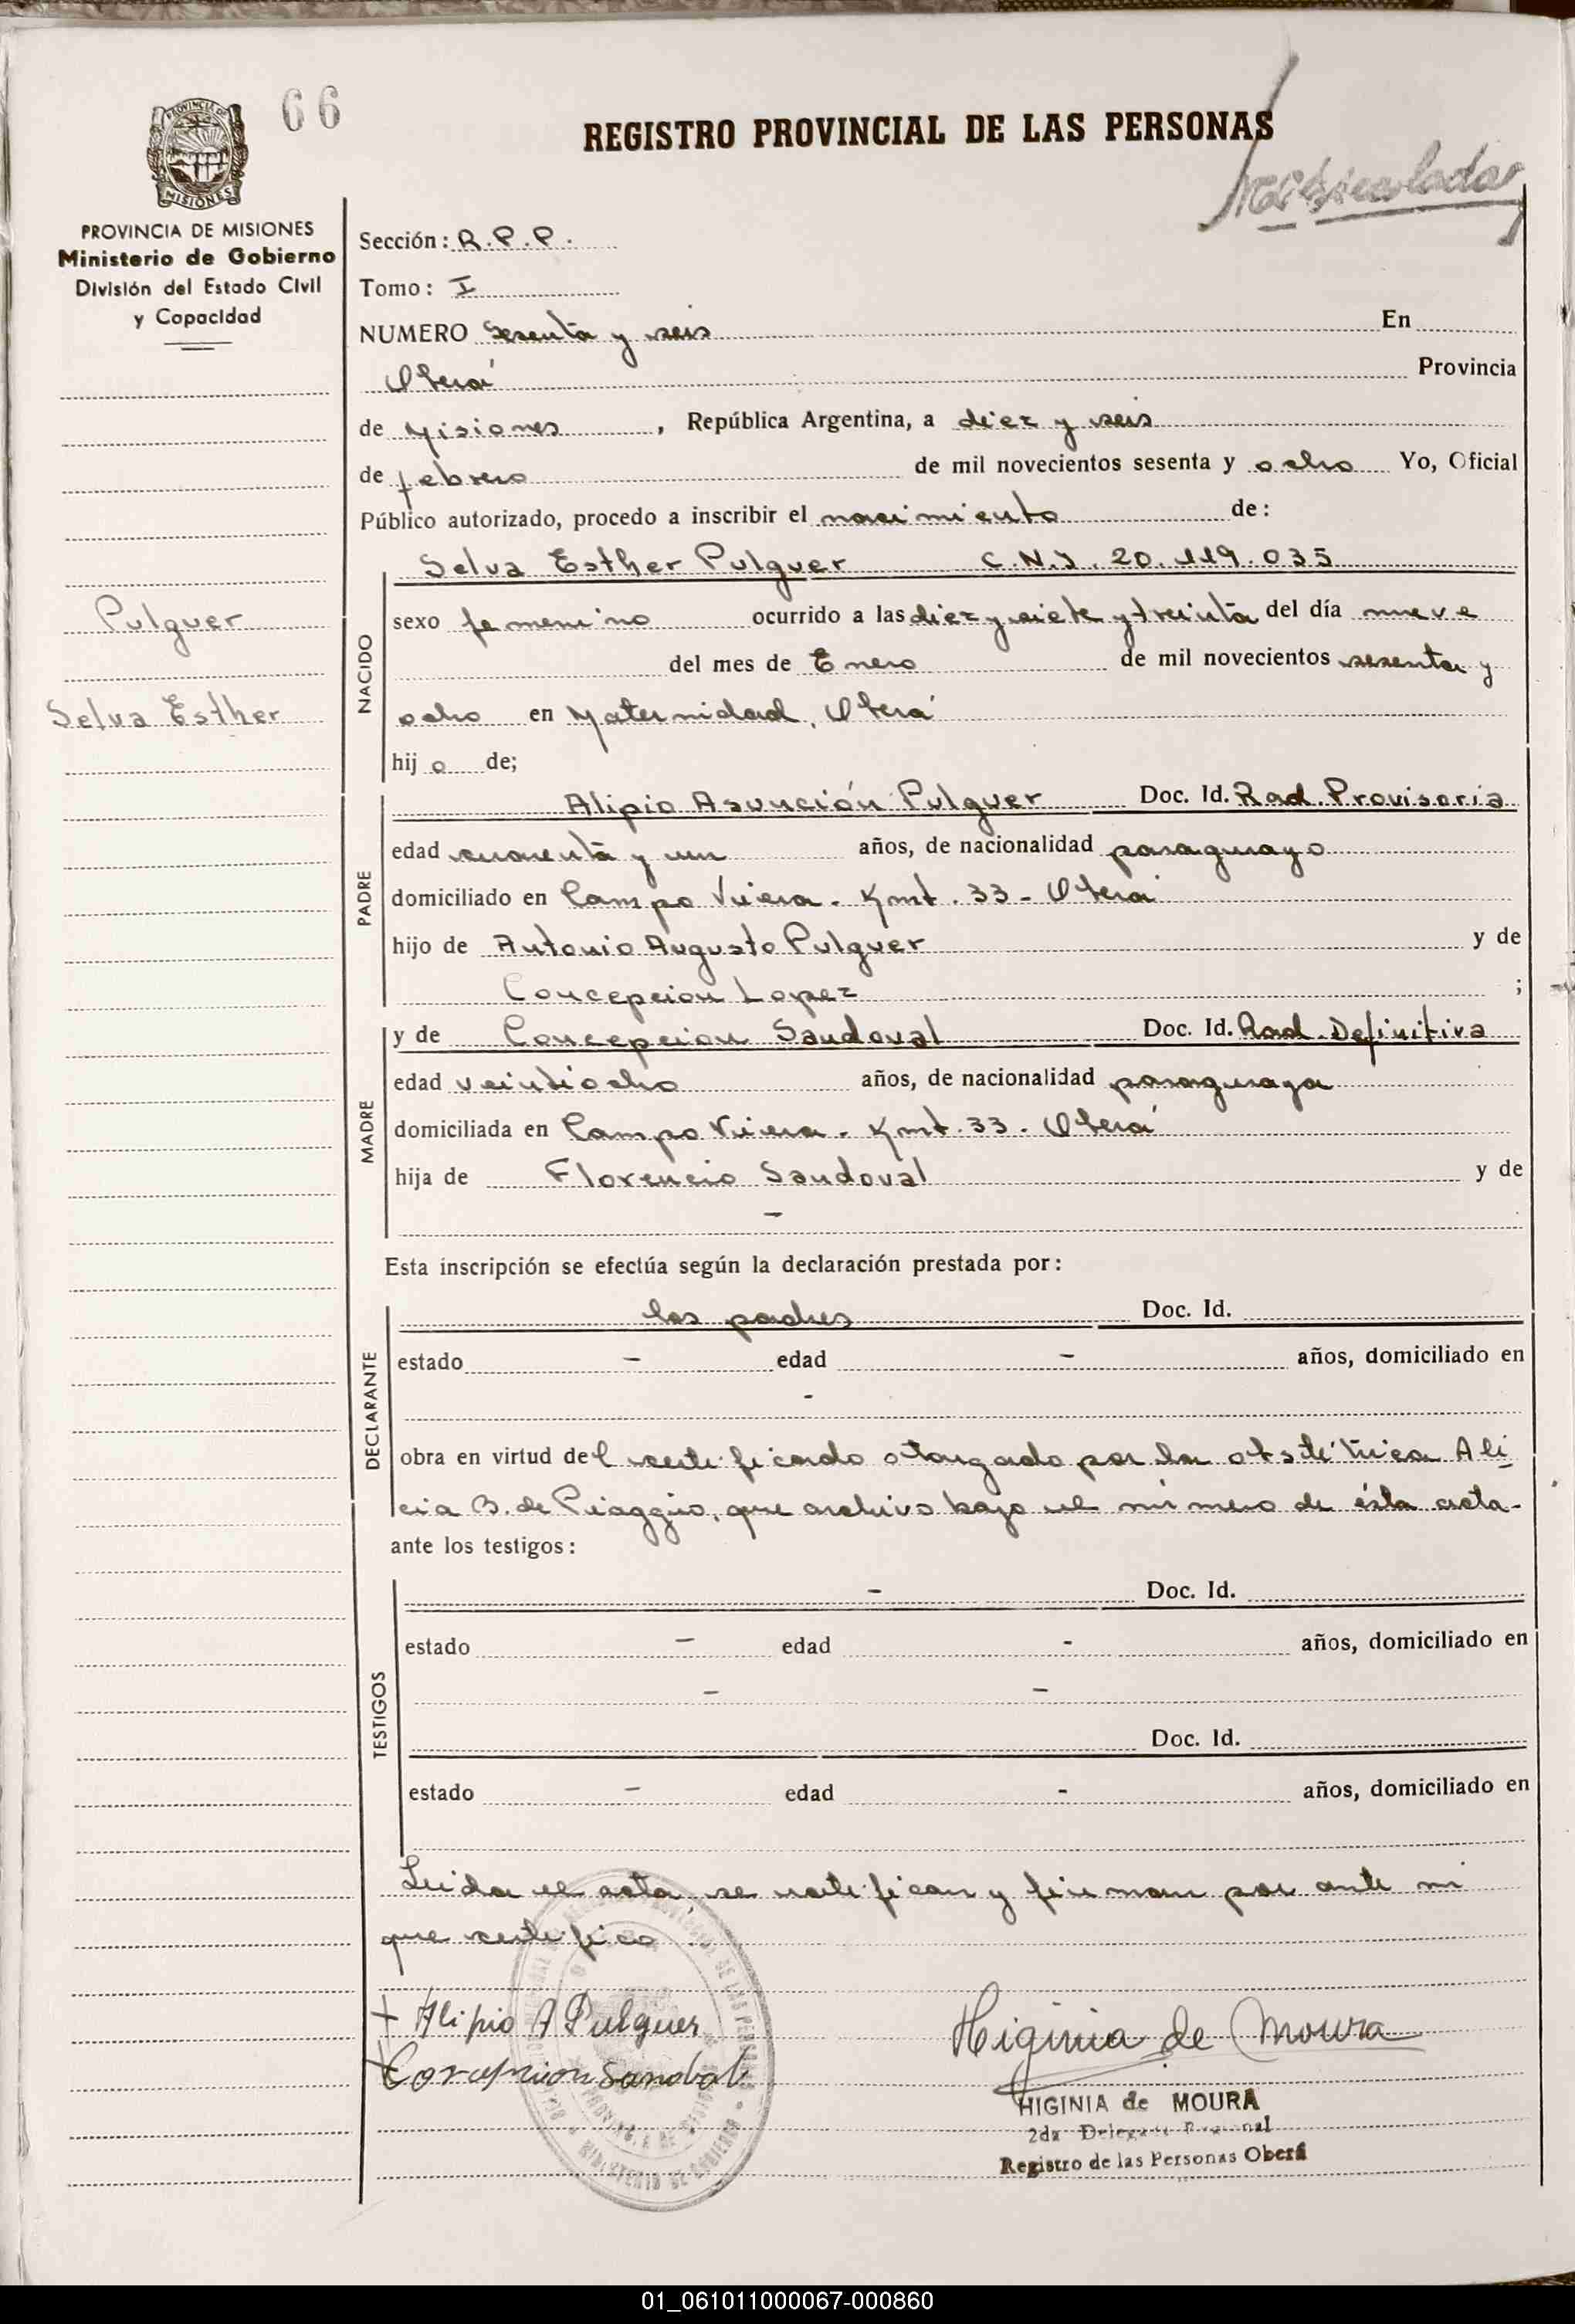 66
REGISTRO PROVINCIAL DE LAS PERSONAS
PROVINCIA DE
MISIONES
PROVINCIA DE MISIONES
Ministerio de Gobierno
División del Estado Civil
y Capacidad
Sección: R.P.P.
Tomo: I
NUMERO sesenta y seis En
Oberá Provincia
de Misiones, República Argentina, a diez y seis
de febrero de mil novecientos sesenta y ocho Yo, Oficial
Público autorizado, procedo a inscribir el nacimiento de:
Selva Esther Pulguer C.N.I. 20.119.035
NACIDO
sexo femenino ocurrido a las diez y siete y treinta del día nueve
del mes de Enero de mil novecientos sesenta y
Pulguer
Selva Esther
ocho en Maternidad, Oberá
hijo de;
PADRE
Alipio Asunción Pulguer Doc. Id. Rad. Provisoria
edad cuarenta y un años, de nacionalidad paraguayo
domiciliado en Campo Viera - Kmt. 33 - Oberá
hijo de Antonio Augusto Pulguer y de
Concepcion Lopez ;
MADRE
y de Concepcion Sandoval Doc. Id. Rad. Definitiva
edad veintiocho años, de nacionalidad paraguaya
domiciliada en Campo Viera - Kmt. 33 - Oberá
hija de Florencio Sandoval y de
-
Esta inscripción se efectúa según la declaración prestada por:
DECLARANTE
los padres Doc. Id.
estado - edad - años, domiciliado en
-
obra en virtud del certificado otorgado por la obstétrica Ali
cia B. de Piaggio, que archivo bajo el número de ésta acta-
ante los testigos:
TESTIGOS
- Doc. Id.
estado - edad - años, domiciliado en
- -
Doc. Id.
estado - edad - años, domiciliado en
Leida el acta, se ratifican y firman por ante mi
que certifico
+ Alipio A Pulguer
Higinia de Moura
HIGINIA de MOURA
2da Delegada Regional
Registro de las Personas Oberá
01_061011000067-000860